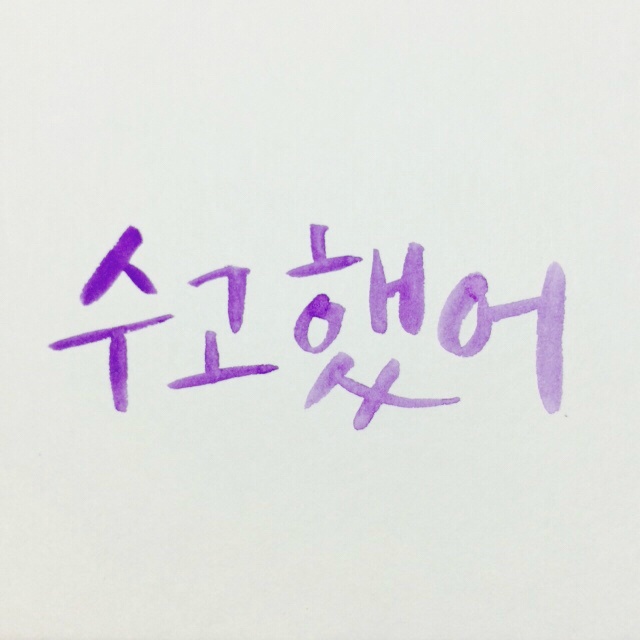 수고했어